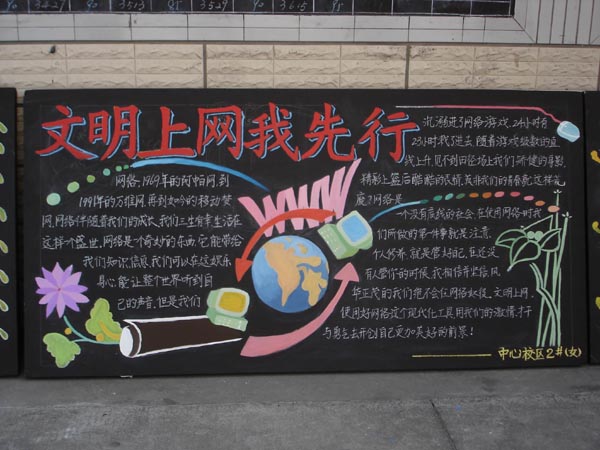 30 3429 90 3513 85 3529 90 3615 95
文明上网我先行
WWW
网络,1969年的阿帕网,到
1991年的万维网,再到如今的移动梦
网,网络伴随着我们的成长,我们三生有幸生活在
这样个盛世,网络是个奇妙的东西,它能带给
我们知识信息,我们可以在这娱乐
身心,能让整个世界听到自
己的声音,但是我们
沉溺进了网络游戏,24小时有
23小时我们进去,随着游戏级数的直
线上升,见不到田径场上我们矫健的身影,
精彩上篮后酷酷的表情,莫非我们的青春就这样荒
废?网络是
一个没有底线的社会,在使用网络时我
们所做的第一件事就是注意
个人修养,就是管好自己,在还没
有人管你的时候,我相信青岁临风
华正茂的我们绝不会任网络奴役,文明上网,
使用好网络这个现代化工具用我们的激情,才干
与勇气去开创自己更加美好的前景!
中心校区2#(女)